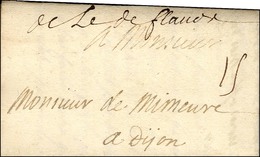 de Le de flandre
A Monsieur
Monsieur de Mimeure
a dijon